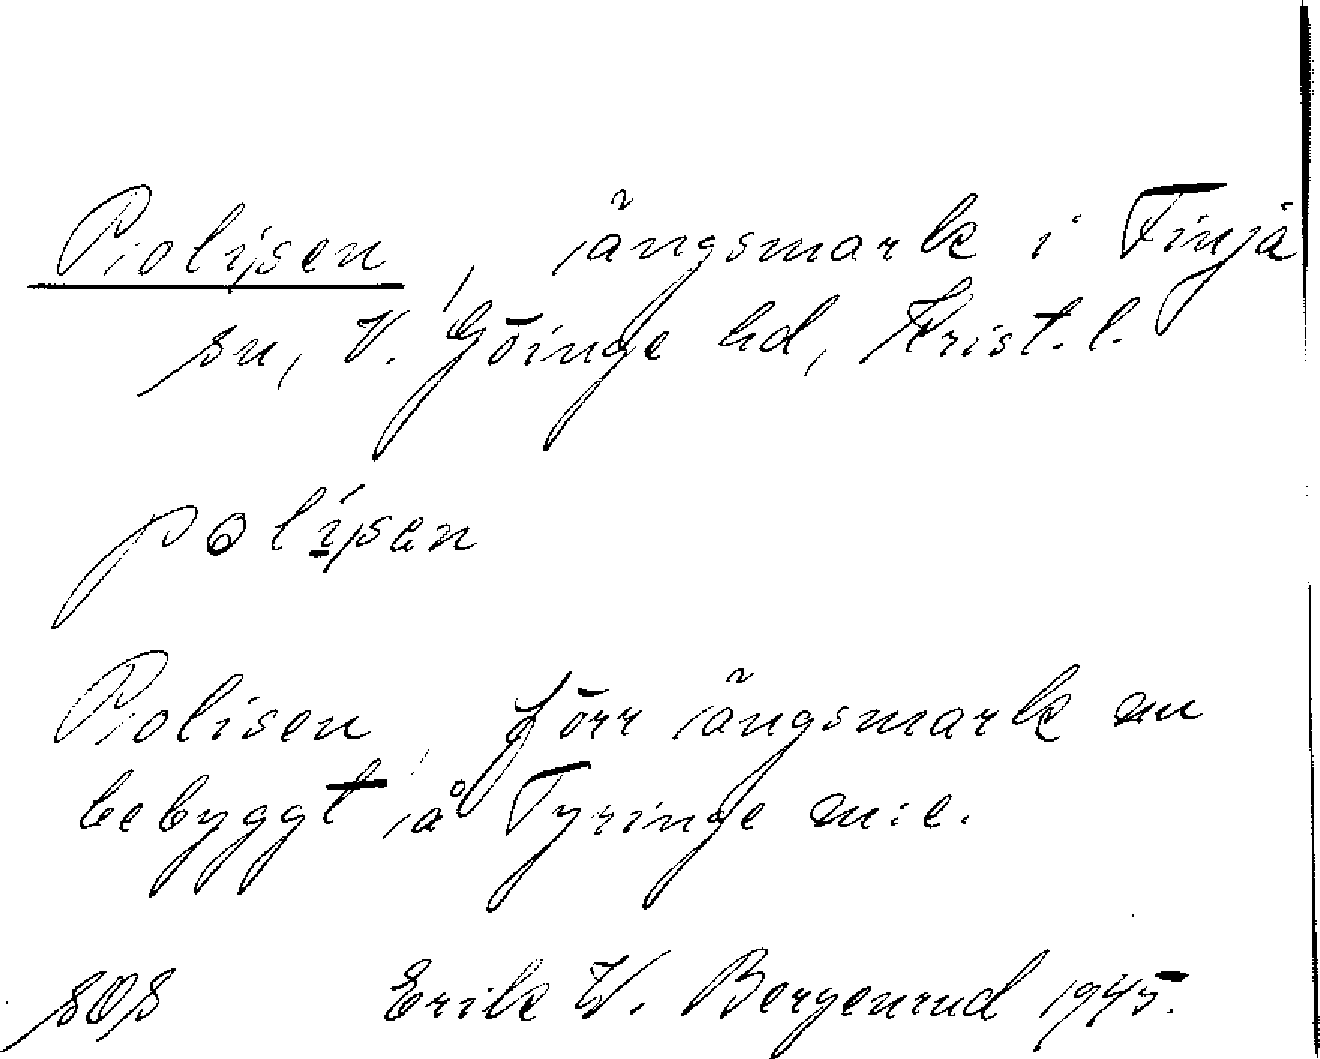 Polisen, ängsmark i Finja
sn, V. Göinge hd, Krist. l.
polísen
Polisen, förr ängsmark nu
bebyggt, å Tyringe m:e.
sos Erik W. Bergenrud 1945.